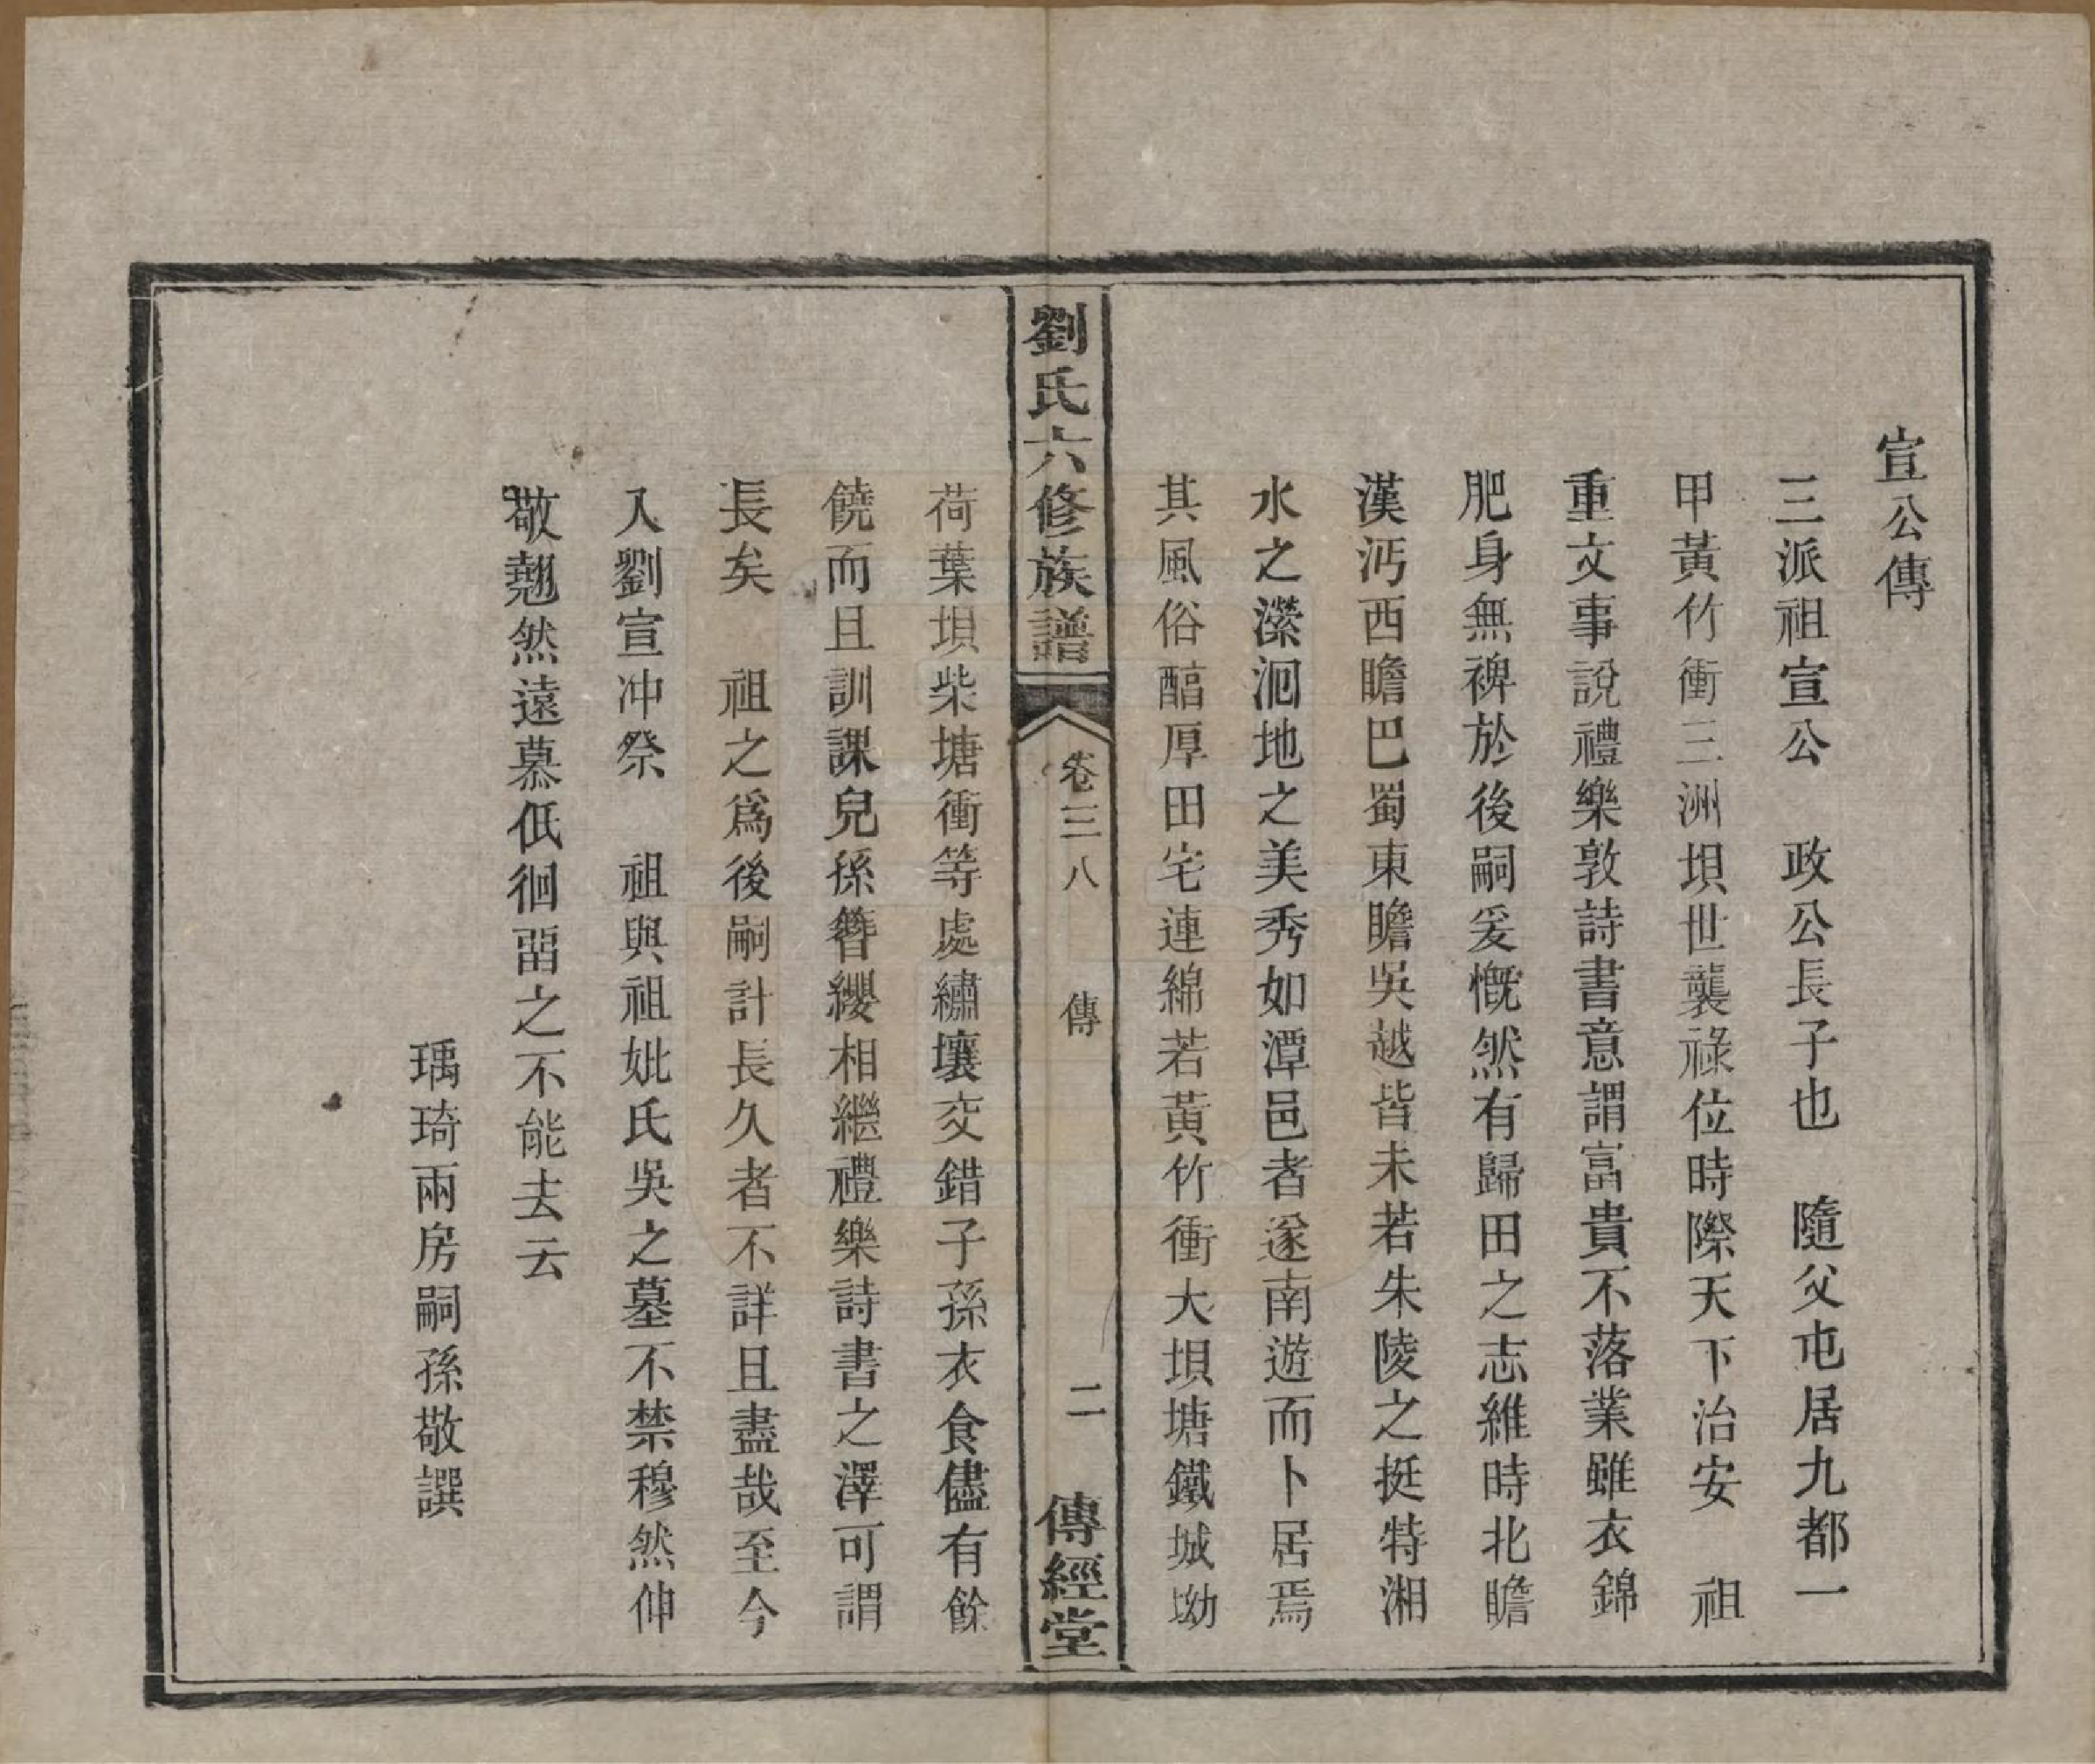 宣公傳
三派祖宣公　政公長子也　隨父屯居九都一
甲黃竹衝三洲垻世襲祿位時際天下治安　祖
重文事說禮樂敦詩書意謂富貴不落業雖衣錦
肥身無裨於後嗣爰慨然有歸田之志維時北瞻
漢沔西瞻巴蜀東瞻吳越皆未若朱陵之挺特湘
水之瀠洄地之美秀如潭邑者遂南遊而卜居焉
其風俗醕厚田宅連綿若黃竹衝大垻塘鐵城坳
劉氏六修族譜
卷三八　傳　二
傳經堂
荷葉垻柴塘衝等處繡壤交錯子孫衣食儘有餘
饒而且訓課兒孫簪纓相繼禮樂詩書之澤可謂
長矣　祖之爲後嗣計長久者不詳且盡哉至今
入劉宣冲祭　祖與祖妣氏吳之墓不禁穆然伸
敬翹然遠慕低徊畱之不能去云
瑀琦兩房嗣孫敬譔